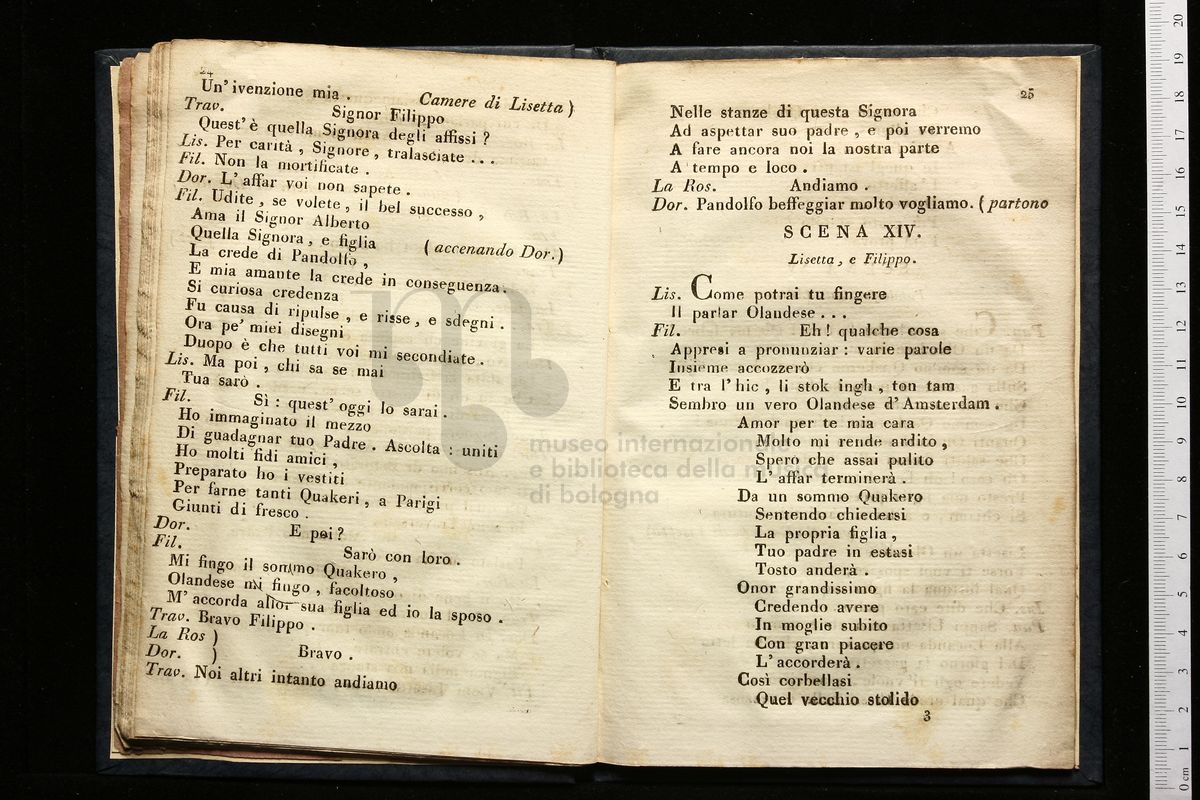 24
Un' ivenzione mia . Camere di Lisetta )
Trav. Signor Filippo
Quest' è quella Signora degli affissi ?
Lis. Per carità , Signore , tralasciate . . .
Fil. Non la mortificate .
Dor. L' affar voi non sapete .
Fil. Udite , se volete , il bel successo ,
Ama il Signor Alberto
Quella Signora , e figlia ( accenando Dor. )
La crede di Pandolfo ,
E mia amante la crede in conseguenza .
Si curiosa credenza
Fu causa di ripulse , e risse , e sdegni .
Ora pe' miei disegni
Duopo è che tutti voi mi secondiate .
Lis. Ma poi , chi sa se mai
Tua sarò .
Fil. Sì : quest' oggi lo sarai .
Ho immaginato il mezzo
Di guadagnar tuo Padre . Ascolta : uniti
Ho molti fidi amici ,
Preparato ho i vestiti
Per farne tanti Quakeri , a Parigi
Giunti di fresco .
Dor. E poi ?
Fil. Sarò con loro .
Mi fingo il sommo Quakero ,
Olandese mi fingo , facoltoso
M' accorda allor sua figlia ed io la sposo .
Trav. Bravo Filippo .
La Ros )
Dor. ) Bravo .
Trav. Noi altri intanto andiamo
25
Nelle stanze di questa Signora
Ad aspettar suo padre , e poi verremo
A fare ancora noi la nostra parte
A tempo e loco .
La Ros. Andiamo .
Dor. Pandolfo beffeggiar molto vogliamo. ( partono
SCENA XIV.
Lisetta , e Filippo.
Lis. Come potrai tu fingere
Il parlar Olandese . . .
Fil. Eh ! qualche cosa
Appresi a pronunziar : varie parole
Insieme accozzerò
E tra l' hic , li stok ingh , ton tam
Sembro un vero Olandese d' Amsterdam .
Amor per te mia cara
Molto mi rende ardito ,
Spero che assai pulito
L' affar terminerà .
Da un sommo Quakero
Sentendo chiedersi
La propria figlia ,
Tuo padre in estasi
Tosto anderà .
Onor grandissimo
Credendo avere
In moglie subito
Con gran piacere
L' accorderà .
Così corbellasi
Quel vecchio stolido
3
museo internazionale
e biblioteca della musica
di bologna
0 cm 1 2 3 4 5 6 7 8 9 10 11 12 13 14 15 16 17 18 19 20